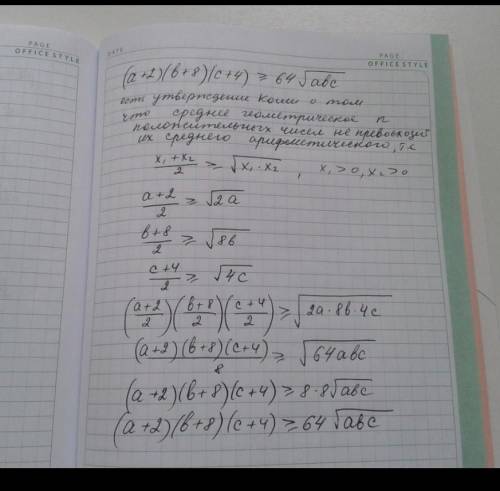 PAGE
OFFICE STYLE
DATE
PAGE
OFFICE STYLE
(a+2)(b+8)(c+4) ≥ 64√abc
есть утверждение Коши о том
что среднее геометрическое n
положительных чисел не превосходит
их среднего арифметического, т.е
(x₁+x₂)/2 ≥ √x₁·x₂ , x₁>0, x₂>0
(a+2)/2 ≥ √2a
(b+8)/2 ≥ √8b
(c+4)/2 ≥ √4c
((a+2)/2)((b+8)/2)((c+4)/2) ≥ √2a·8b·4c
(a+2)(b+8)(c+4)/8 ≥ √64abc
(a+2)(b+8)(c+4) ≥ 8·8√abc
(a+2)(b+8)(c+4) ≥ 64√abc